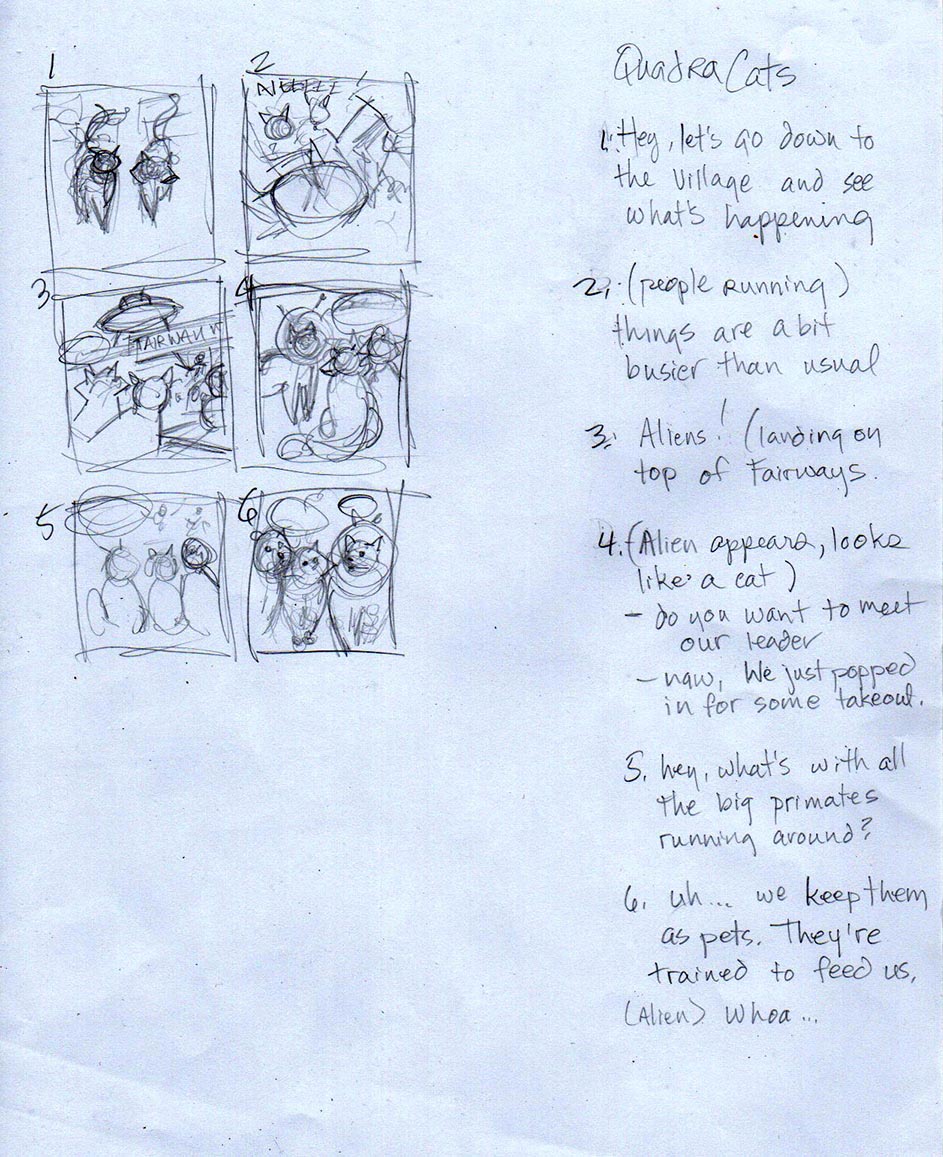 1
2
AIEEEEE!
3
FAIRWAY
4
5
6
Quadra Cats
1. Hey, let's go down to
the Village and see
what's happening
2. (people running)
things are a bit
busier than usual
3. Aliens! (landing on
top of Fairways.
4. (Alien appears, looks
like a cat)
- do you want to meet
our leader
- naw, We just popped
in for some takeout.
5. hey, what's with all
the big primates
running around?
6. uh... we keep them
as pets. They're
trained to feed us,
(Alien) Whoa...